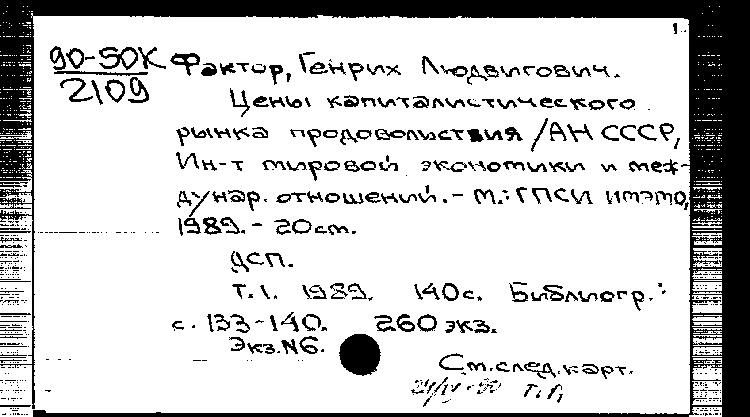 1.
90-50К
2109
Фактор, Генрих Людвигович.
Цены капиталистического
рынка продовольствия /АН СССР,
Ин-т мировой экономики и меж-
дунар. отношений. - М.: ГПСИ ИМЭМО,
1989. - 20 см.
ДСП.
Т. 1. 1989. 140 с. Библиогр.:
с. 133-140. 260 экз.
Экз. N6.
См. след. карт.
24/IV-90 Т.Л